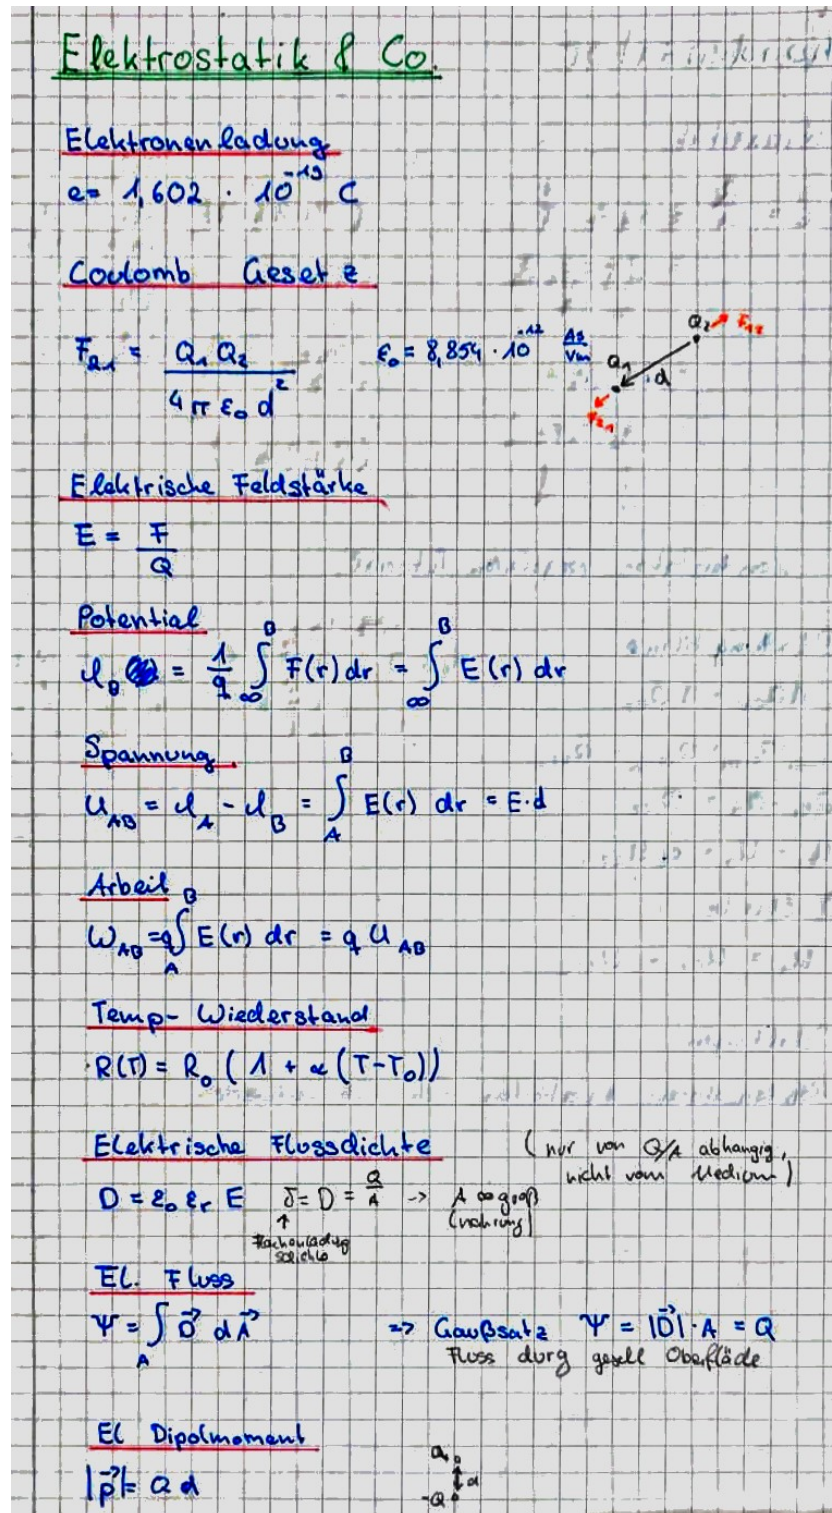 Elektrostatik & Co.
Elektronenladung
e = 1,602 · 10⁻¹⁹ C
Coulomb Gesetz
F₂₁ = Q₁ Q₂ / 4 π ε₀ d²
ε₀ = 8,854 · 10⁻¹² As/Vm
Q₂ F₁₂
Q₁ d
F₂₁
Elektrische Feldstärke
E = F / Q
Potential
φ_B = 1/q ∫_∞^B F(r) dr = ∫_∞^B E(r) dr
Spannung
U_AB = φ_A - φ_B = ∫_A^B E(r) dr = E·d
Arbeit
W_AB = q ∫_A^B E(r) dr = q U_AB
Temp- Wiederstand
R(T) = R₀ ( 1 + α (T-T₀))
Elektrische Flussdichte
(nur von Q/A abhangig,
nicht vom Medium)
D = ε₀ ε_r E δ = D = Q/A -> A ∞ groß
↑ (nahrung)
Flachenladung
El. Fluss
Ψ = ∫_A D⃗ dA⃗ => Gaußsatz Ψ = |D⃗| · A = Q
Fluss durg
El Dipolmoment
|p⃗| = Q d
d
-Q